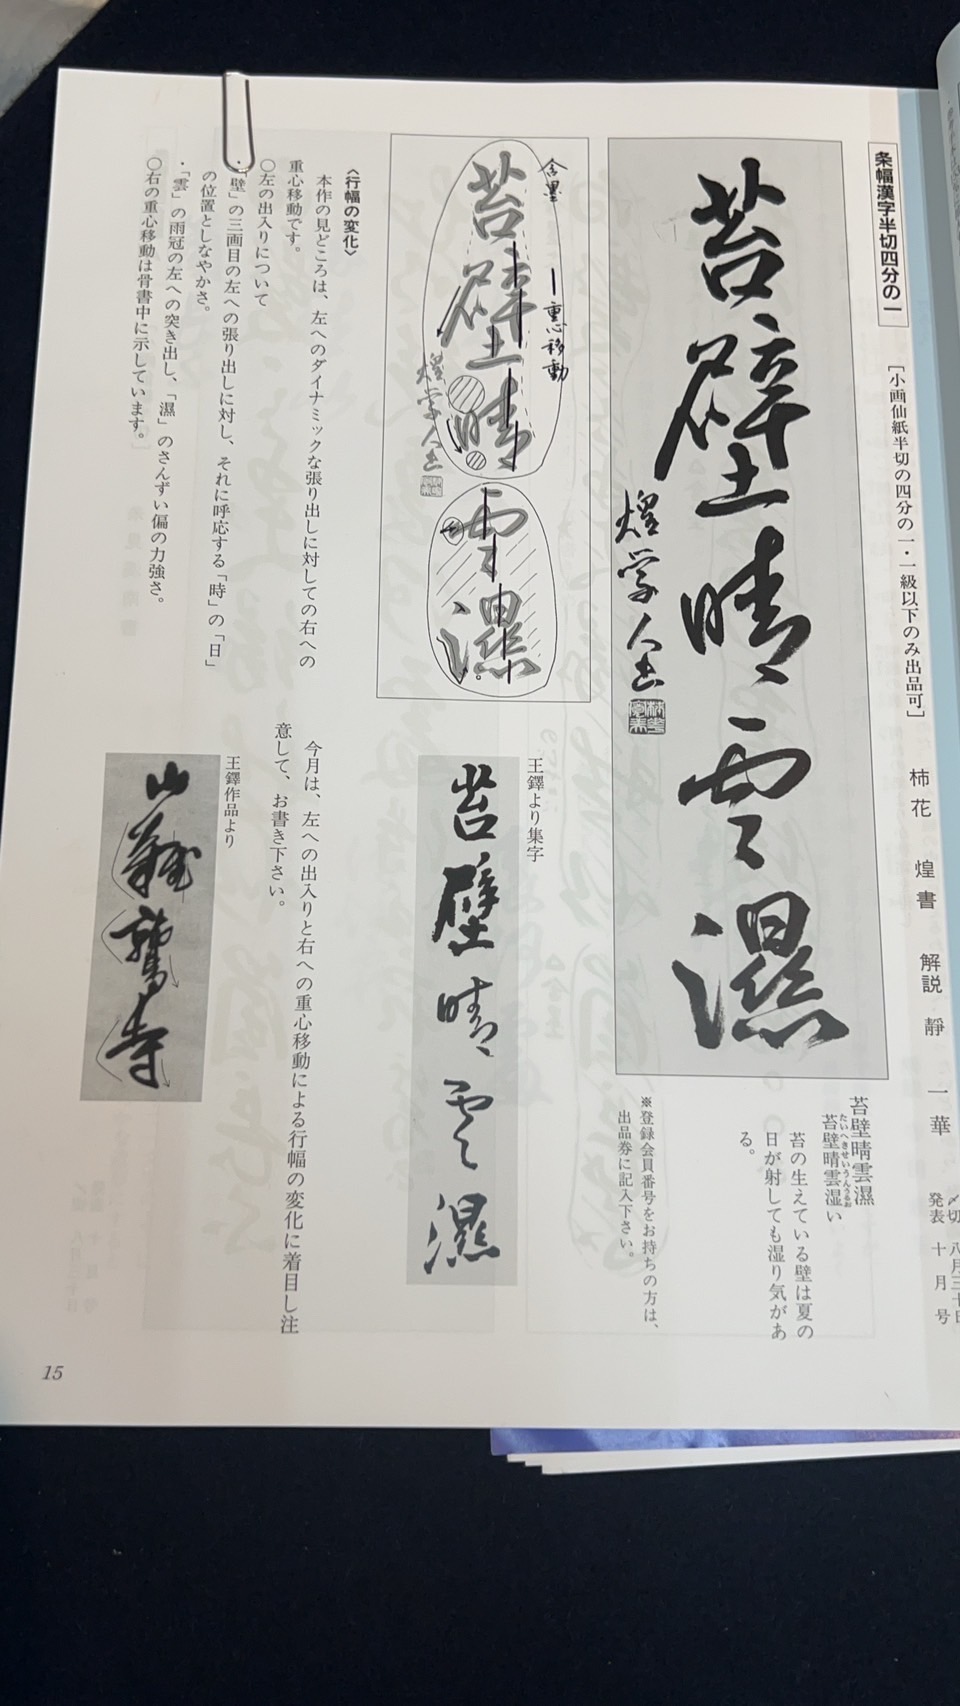 条幅漢字半切四分の一
［小画仙紙半切の四分の一・一級以下のみ出品可］
柿花 煌書 解説 靜 一華
〆切 八月三十日
発表 十月号
苔壁晴雲濕
煌学人書
苔壁晴雲濕
たいへきせいうんうるお
苔壁晴雲湿い
苔の生えている壁は夏の
日が射しても湿り気があ
る。
※登録会員番号をお持ちの方は、
出品券に記入下さい。
含墨
重心移動
苔壁晴雲濕
煌学人書
王鐸より集字
苔壁晴雲濕
〈行幅の変化〉
本作の見どころは、左へのダイナミックな張り出しに対しての右への
重心移動です。
○左の出入りについて
・「壁」の三画目の左への張り出しに対し、それに呼応する「時」の「日」
の位置としなやかさ。
・「雲」の雨冠の左への突き出し、「濕」のさんずい偏の力強さ。
○右の重心移動は骨書中に示しています。
今月は、左への出入りと右への重心移動による行幅の変化に着目し注
意して、お書き下さい。
王鐸作品より
15